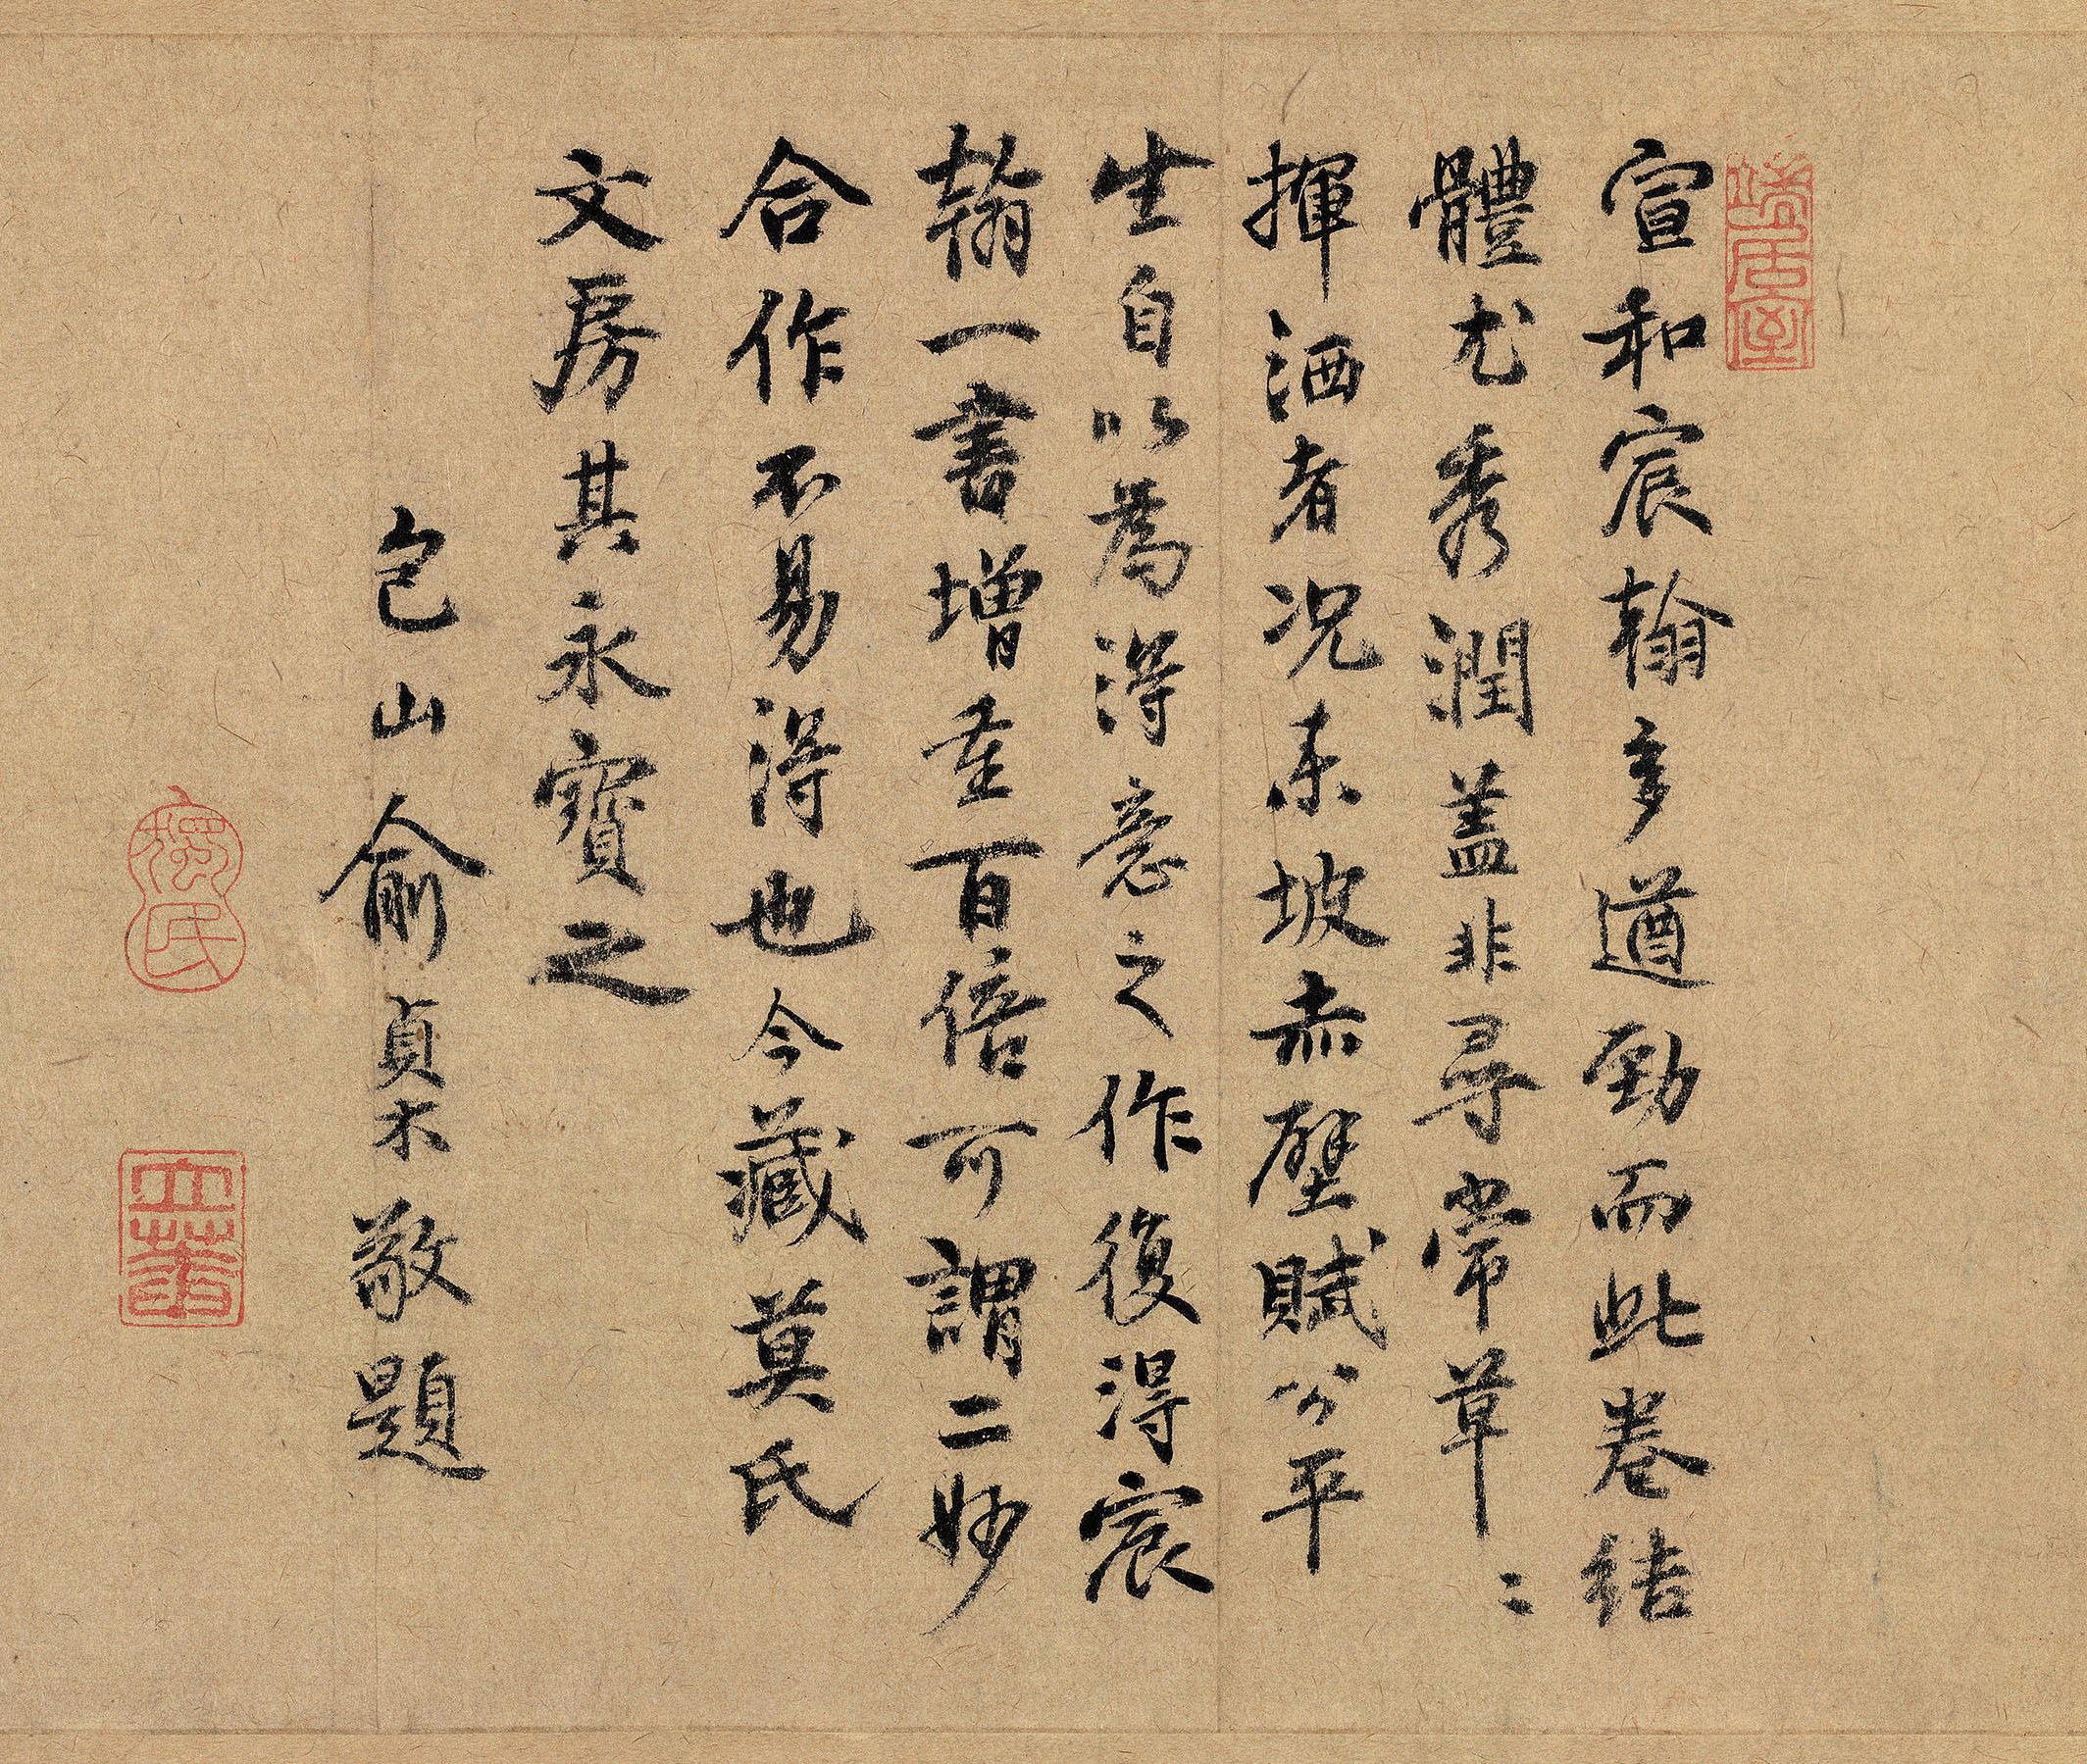 宣和宸翰多遒勁而此卷結
體尤秀潤蓋非尋常草〻
揮洒者況東坡赤壁賦公平
生自以為得意之作復得宸
翰一書增重百倍可謂二妙
合作不易得也今藏莫氏
文房其永寶之
包山俞貞木敬題
立菴